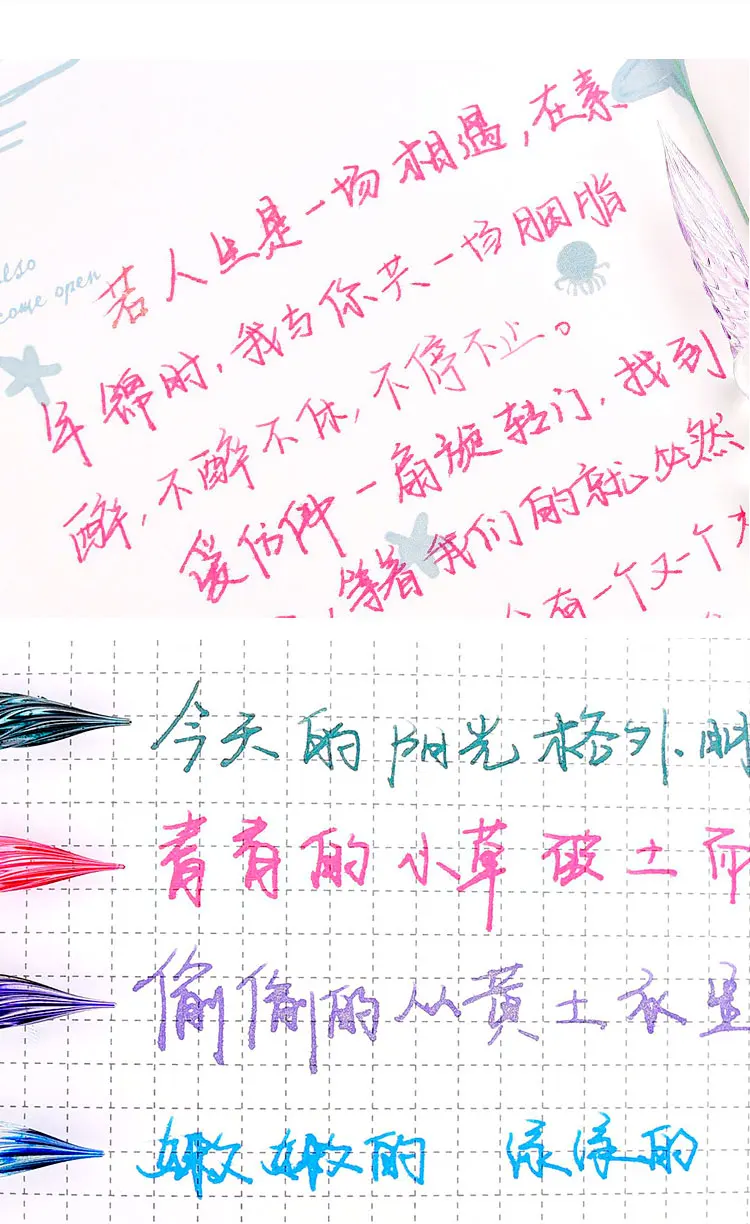 also
come open
若人生是一场相遇,在素
年锦时,我与你共一场胭脂
醉,不醉不休,不停不止。
爱仿佛一扇旋转门,找到
,等着我们的就必然
会有一个又一个
今天的阳光格外明
青青的小草破土而
偷偷的从黄土衣里
嫩嫩的 绿绿的